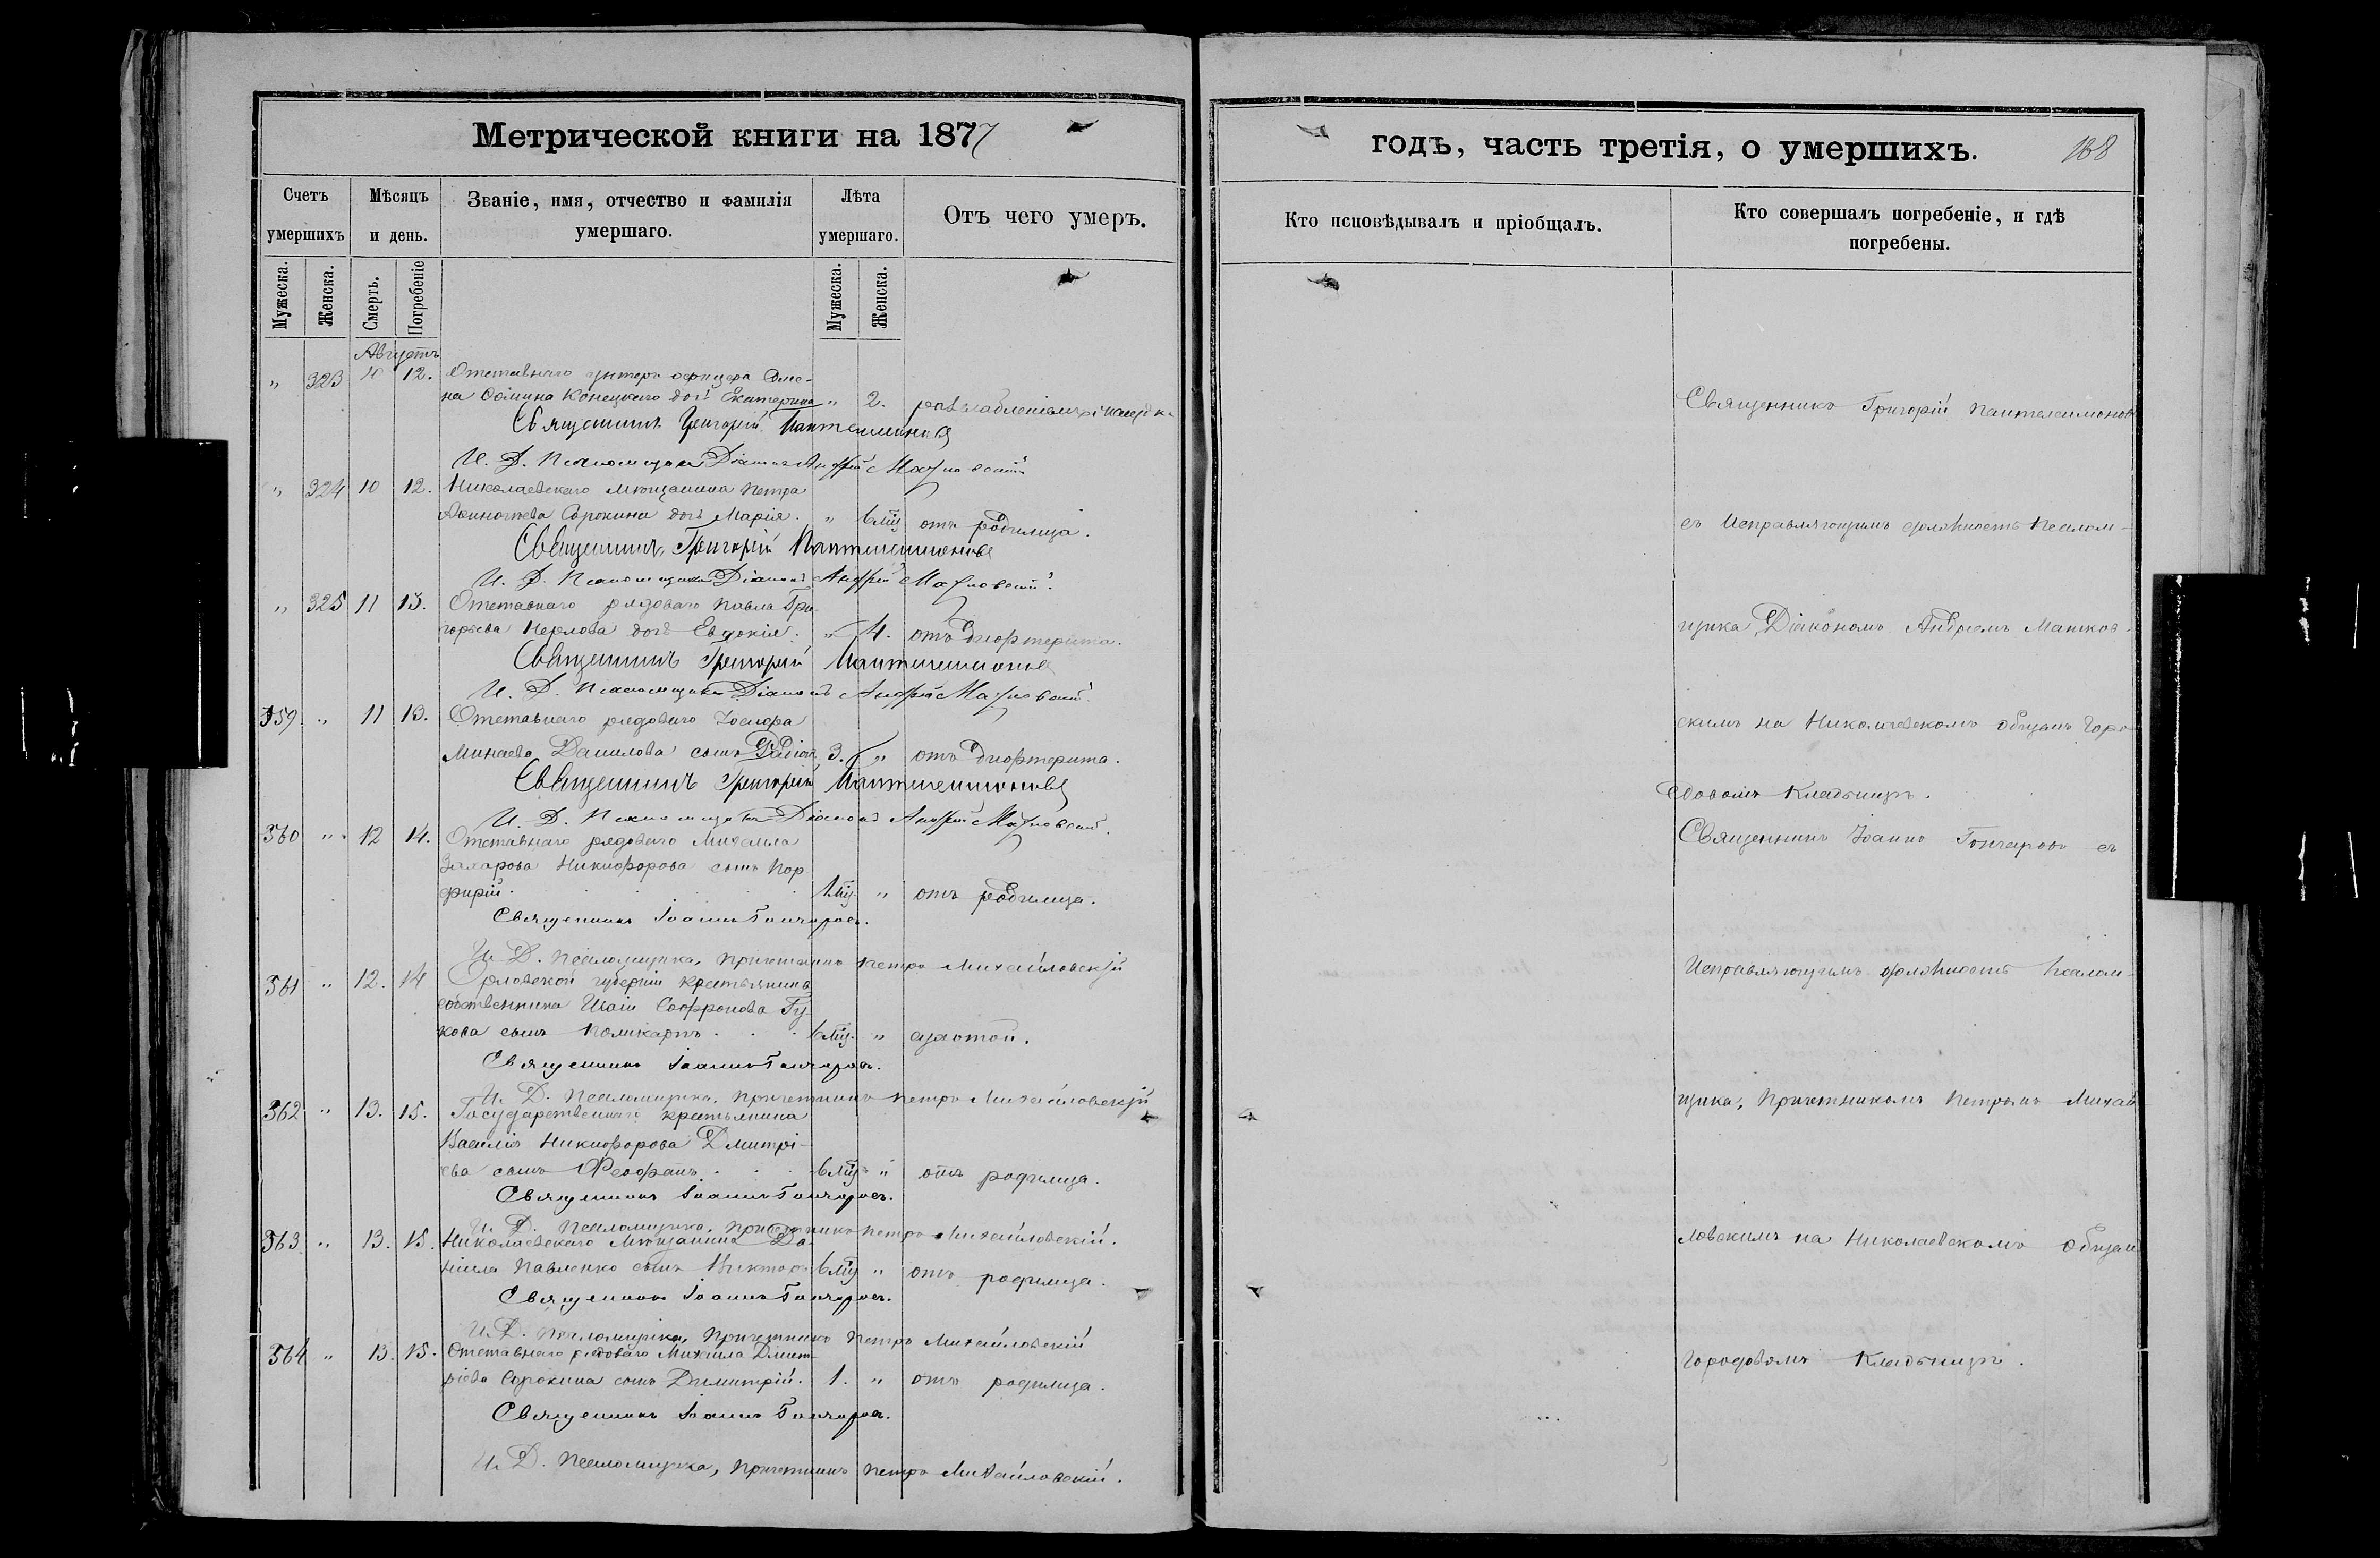 Метрической книги на 1877
Счетъ умершихъ
Мѣсяцъ и день.
Званіе, имя, отчество и фамилія умершаго.
Лѣта умершаго.
Отъ чего умеръ.
Мужеска.
Женска.
Смерть.
Погребеніе
Мужеска.
Женска.
Августъ
" 323 10 12. Отставнаго унтеръ офицера
Конецкаго дочь Екатерина " 2.
Священникъ Григорій Пантелеимоновъ
И. Д. Псаломщика Діаконъ Андрей
" 324 10 12. Николаевскаго мѣщанина Петра
Сорокина дочь Марія. " 6 мц отъ родимца.
Священникъ Григорій Пантелеимоновъ
И. Д. Псаломщика Діаконъ Андрей
" 325 11 13. Отставнаго рядоваго Павла Гри-
горьева дочь Евдокія. " 4. отъ дифтерита.
Священникъ Григорій Пантелеимоновъ
И. Д. Псаломщика Діаконъ Андрей
359 " 11 13. Отставнаго рядоваго Іосифа
Минаева Данилова сынъ 3. " отъ дифтерита.
Священникъ Григорій Пантелеимоновъ
И. Д. Псаломщика Діаконъ Андрей
360 " 12 14. Отставнаго рядоваго Михаила
Захарова Никифорова сынъ Пор-
фирій. 1 мц. " отъ родимца.
Священникъ Іоаннъ Гончаровъ.
И. Д. Псаломщика, Причетникъ Петръ Михайловскій
361 " 12. 14 Орловской губерніи крестьянина
собственника Исаіи Софронова Гу-
кова сынъ Поликарпъ 6 мц. " сухотой.
Священникъ Іоаннъ Гончаровъ.
И. Д. Псаломщика, Причетникъ Петръ Михайловскій
362 " 13. 15. Государственнаго крестьянина
Василія Никифорова Дмитрі-
ева сынъ Феофанъ 6 мц " отъ родимца.
Священникъ Іоаннъ Гончаровъ.
И. Д. Псаломщика, Причетникъ Петръ Михайловскій.
363 " 13. 15. Николаевскаго Мѣщанина Да-
ніила Павленко сынъ Викторъ 6 мц " отъ родимца.
Священникъ Іоаннъ Гончаровъ.
И. Д. Псаломщика, Причетникъ Петръ Михайловскій
364 " 13. 15. Отставнаго рядоваго Михаила Дмит-
ріева Сорокина сынъ Димитрій. 1. " отъ родимца.
Священникъ Іоаннъ Гончаровъ.
И. Д. Псаломщика, Причетникъ Петръ Михайловскій.
годъ, часть третія, о умершихъ. 168
Кто исповѣдывалъ и пріобщалъ.
Кто совершалъ погребеніе, и гдѣ погребены.
Священникъ Григорій Пантелеимоновъ
съ Исправляющимъ должность Псалом-
щика, Діакономъ Андреемъ Матков-
скимъ на Николаевскомъ общемъ горо-
довомъ Кладбищѣ.
Священникъ Іоаннъ Гончаровъ съ
Исправляющимъ должность Псалом-
щика, Причетникомъ Петромъ Михай
ловскимъ на Николаевскомъ общем
городовомъ Кладбищѣ.